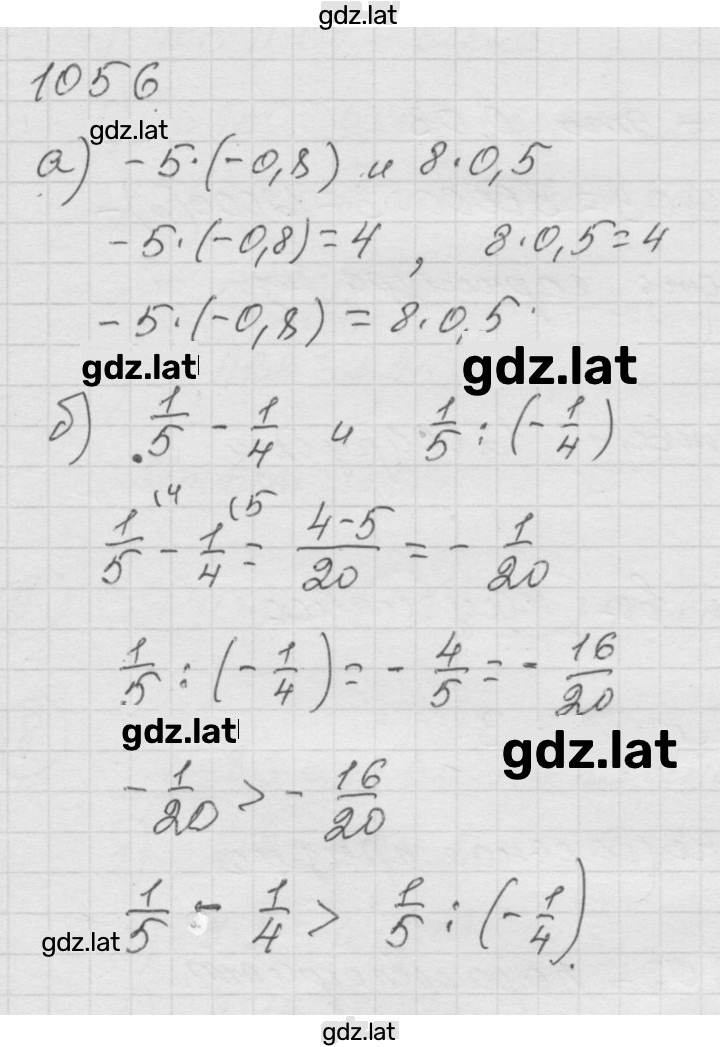 gdz.lat
1056
gdz.lat
а) -5·(-0,8) и 8·0,5
-5·(-0,8)=4, 8·0,5=4
-5·(-0,8)=8·0,5
gdz.lat
gdz.lat
б) 1/5 - 1/4 и 1/5 : (-1/4)
1/5 (4 - 1/4 (5 = (4-5)/20 = -1/20
1/5 : (-1/4) = -4/5 = -16/20
gdz.lat
gdz.lat
-1/20 > -16/20
1/5 - 1/4 > 1/5 : (-1/4).
gdz.lat
gdz.lat